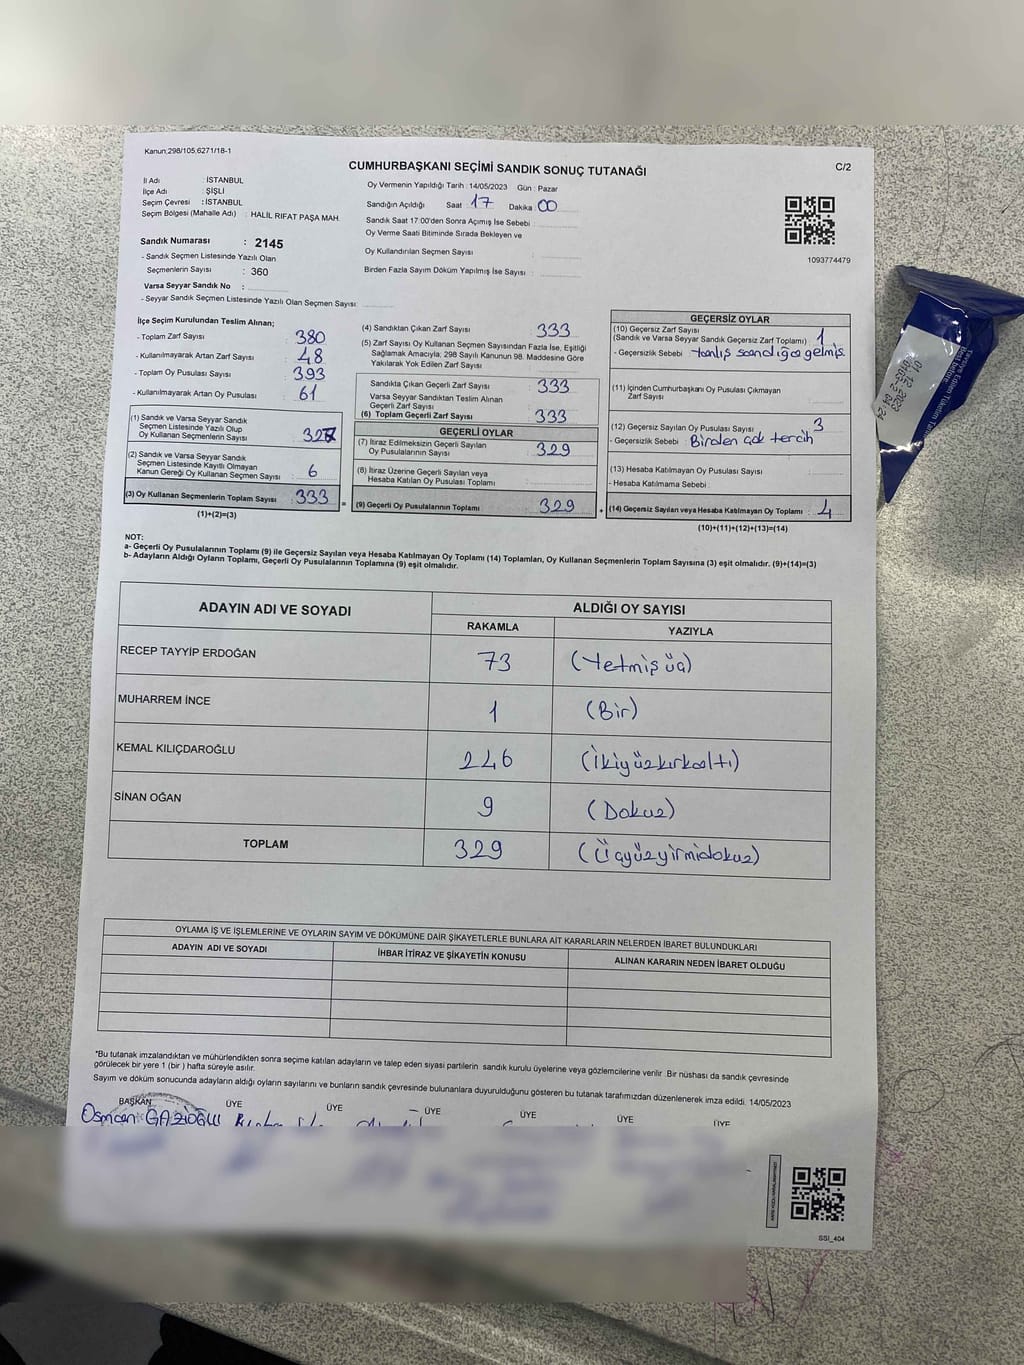 Kanun;298/105,6271/18-1
CUMHURBAŞKANI SEÇİMİ SANDIK SONUÇ TUTANAĞI
C/2
İl Adı : İSTANBUL
İlçe Adı : ŞİŞLİ
Seçim Çevresi : İSTANBUL
Seçim Bölgesi (Mahalle Adı) : HALİL RIFAT PAŞA MAH.
Sandık Numarası : 2145
- Sandık Seçmen Listesinde Yazılı Olan
Seçmenlerin Sayısı : 360
Varsa Seyyar Sandık No :
- Seyyar Sandık Seçmen Listesinde Yazılı Olan Seçmen Sayısı:
Oy Vermenin Yapıldığı Tarih : 14/05/2023 Gün : Pazar
Sandığın Açıldığı Saat 17 Dakika 00
Sandık Saat 17:00'den Sonra Açımış İse Sebebi :
Oy Verme Saati Bitiminde Sırada Bekleyen ve
Oy Kullandırılan Seçmen Sayısı :
Birden Fazla Sayım Döküm Yapılmış İse Sayısı :
1093774479
İlçe Seçim Kurulundan Teslim Alınan;
- Toplam Zarf Sayısı : 380
- Kullanılmayarak Artan Zarf Sayısı : 48
- Toplam Oy Pusulası Sayısı : 393
- Kullanılmayarak Artan Oy Pusulası : 61
(1) Sandık ve Varsa Seyyar Sandık
Seçmen Listesinde Yazılı Olup
Oy Kullanan Seçmenlerin Sayısı : 327
(2) Sandık ve Varsa Seyyar Sandık
Seçmen Listesinde Kayıtlı Olmayan
Kanun Gereği Oy Kullanan Seçmen Sayısı : 6
(3) Oy Kullanan Seçmenlerin Toplam Sayısı : 333 =
(1)+(2)=(3)
(4) Sandıktan Çıkan Zarf Sayısı : 333
(5) Zarf Sayısı Oy Kullanan Seçmen Sayısından Fazla İse, Eşitliği
Sağlamak Amacıyla; 298 Sayılı Kanunun 98. Maddesine Göre
Yakılarak Yok Edilen Zarf Sayısı :
Sandıkta Çıkan Geçerli Zarf Sayısı : 333
Varsa Seyyar Sandıktan Teslim Alınan
Geçerli Zarf Sayısı :
(6) Toplam Geçerli Zarf Sayısı : 333
GEÇERLİ OYLAR
(7) İtiraz Edilmeksizin Geçerli Sayılan
Oy Pusulasının Sayısı : 329
(8) İtiraz Üzerine Geçerli Sayılan veya
Hesaba Katılan Oy Pusulası Toplamı :
(9) Geçerli Oy Pusulalarının Toplamı : 329 +
GEÇERSİZ OYLAR
(10) Geçersiz Zarf Sayısı
(Sandık ve Varsa Seyyar Sandık Geçersiz Zarf Toplamı) : 1
- Geçersizlik Sebebi : Yanlış sandığa gelmiş
(11) İçinden Cumhurbaşkanı Oy Pusulası Çıkmayan
Zarf Sayısı :
(12) Geçersiz Sayılan Oy Pusulası Sayısı : 3
- Geçersizlik Sebebi : Birden çok tercih
(13) Hesaba Katılmayan Oy Pusulası Sayısı :
- Hesaba Katılmama Sebebi :
(14) Geçersiz Sayılan veya Hesaba Katılmayan Oy Toplamı : 4
(10)+(11)+(12)+(13)=(14)
NOT:
a- Geçerli Oy Pusulalarının Toplamı (9) ile Geçersiz Sayılan veya Hesaba Katılmayan Oy Toplamı (14) Toplamları, Oy Kullanan Seçmenlerin Toplam Sayısına (3) eşit olmalıdır. (9)+(14)=(3)
b- Adayların Aldığı Oyların Toplamı, Geçerli Oy Pusulalarının Toplamına (9) eşit olmalıdır.
ADAYIN ADI VE SOYADI ALDIĞI OY SAYISI
RAKAMLA YAZIYLA
RECEP TAYYİP ERDOĞAN 73 (Yetmiş üç)
MUHARREM İNCE 1 (Bir)
KEMAL KILIÇDAROĞLU 246 (İkiyüzkırkaltı)
SİNAN OĞAN 9 (Dokuz)
TOPLAM 329 (Üçyüzyirmidokuz)
OYLAMA İŞ VE İŞLEMLERİNE VE OYLARIN SAYIM VE DÖKÜMÜNE DAİR ŞİKAYETLERLE BUNLARA AİT KARARLARIN NELERDEN İBARET BULUNDUKLARI
ADAYIN ADI VE SOYADI İHBAR İTİRAZ VE ŞİKAYETİN KONUSU ALINAN KARARIN NEDEN İBARET OLDUĞU
*Bu tutanak imzalandıktan ve mühürlendikten sonra seçime katılan adayların ve talep eden siyasi partilerin sandık kurulu üyelerine veya gözlemcilerine verilir .Bir nüshası da sandık çevresinde
görülecek bir yere 1 (bir ) hafta süreyle asılır.
Sayım ve döküm sonucunda adayların aldığı oyların sayılarını ve bunların sandık çevresinde bulunanlara duyurulduğunu gösteren bu tutanak tarafımızdan düzenlenerek imza edildi. 14/05/2023
BAŞKAN ÜYE ÜYE ÜYE ÜYE ÜYE ÜYE
Osman GAZİOĞLU
SSI_404